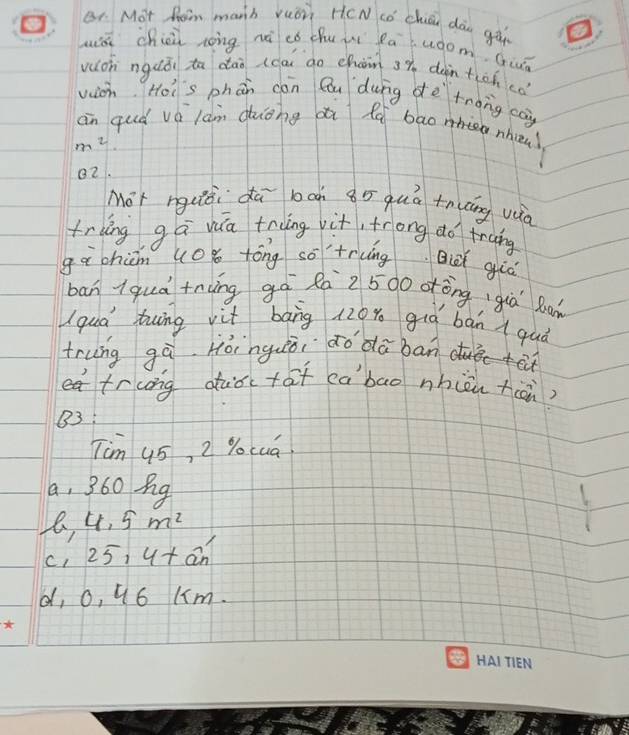 B1. Một hòn mảnh vườn HCN có chiều dài gấp
rưỡi chiều rộng và có chu vi là: 400m. Giữa
vườn người ta đào 1 cái ao chiếm 3% diện tích cả
vườn. Hỏi S phần còn lại dùng để trồng cây
ăn quả và làm đường đi là bao nhiêu nhiêu
m².
B2.
Một người đã bán 85 quả trứng vừa
trứng gà vừa trứng vịt, trong đó trứng
gà chiếm 40% tổng số trứng. Biết giá
bán 1 quả trứng gà là 2 500 đồng, giá bán
1 quả trứng vịt bằng 120% giá bán 1 quả
trứng gà. Hỏi người đó đã bán được tất
cả trứng được tất cả bao nhiêu tiền?
B3:
Tìm 45,2% của.
a, 360 kg
b, 4,5 m²
c, 25,4 tấn
d, 0,46 km.
HẢI TIẾN